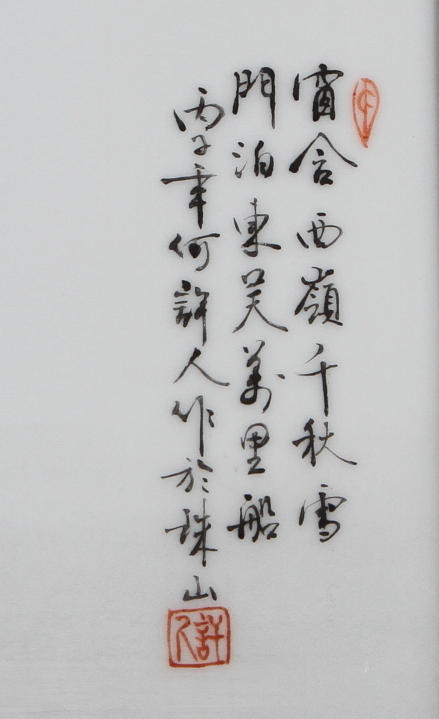 窗含西嶺千秋雪
門泊東吴萬里船
丙子年何許人作於珠山
許人